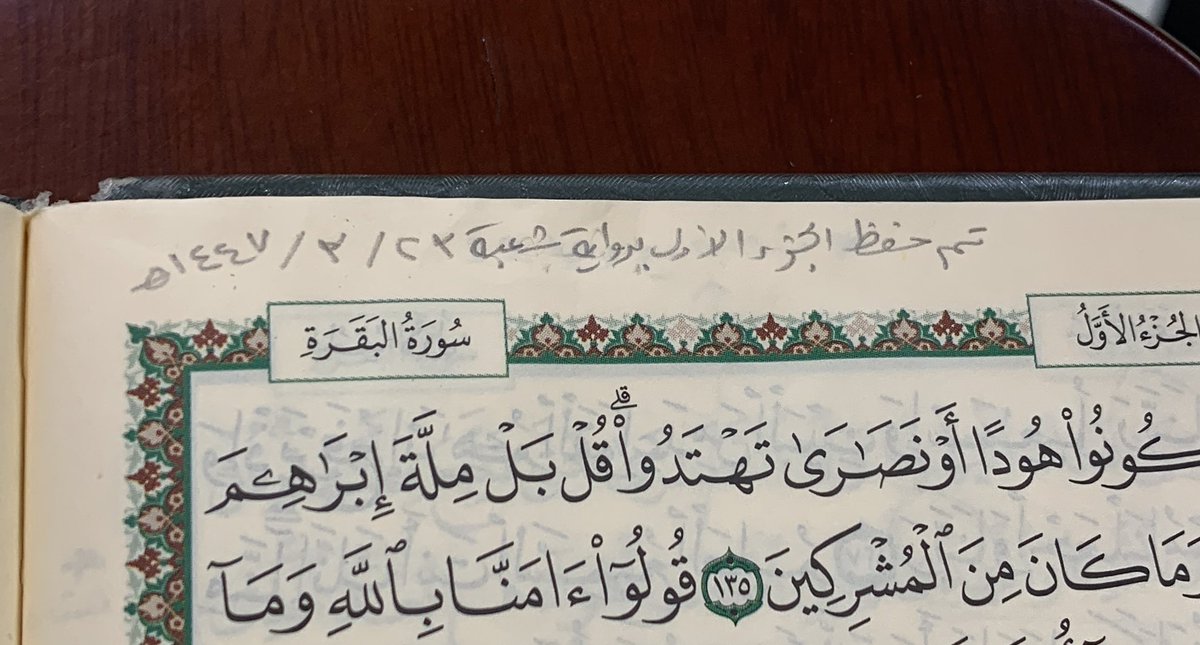 تم حفظ الجزء الأول برواية شعبة ٢٣ / ٣ / ١٤٤٧هـ
الجُزْءُ الأَوَّلُ
سُورَةُ البَقَرَةِ
كُونُوا۟ هُودًا أَوْ نَصَٰرَىٰ تَهْتَدُوا۟ۗ قُلْ بَلْ مِلَّةَ إِبْرَٰهِـۧمَ
وَمَا كَانَ مِنَ ٱلْمُشْرِكِينَ ١٣٥ قُولُوٓا۟ ءَامَنَّا بِٱللَّهِ وَمَآ